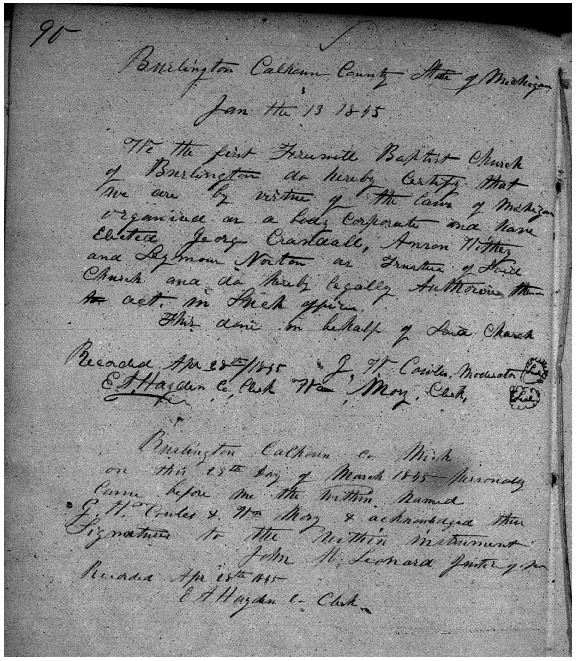 90
Burlington Calhoun County State of Michigan
Jan the 13 1845
We the first Freewill Baptist Church
of Burlington do hereby Certify that
we are by virtue of the laws of Michigan
organised as a body Corporate and have
Elected George Crandall,
and Seymour Norton as Trustees of Said
Church and do hereby legally Authorise them
to act in Such office
This done in behalf of Said Church
Recorded Apr 28th 1845 J. W. Cowles Moderator Seal
E A Hayden Co Clerk Wm Mory Clerk, Seal
Burlington Calhoun Co Mich
on this 25th day of March 1845 personally
Came before me the within named
Cowles & Wm Mory & acknowledged their
Signatures to the within instrument
John Leonard Justice of
Recorded Apr 28th 1845
E A Hayden Co Clerk.